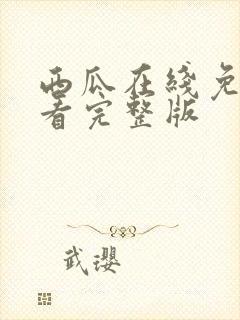 西瓜在线免
看完整版
武璎